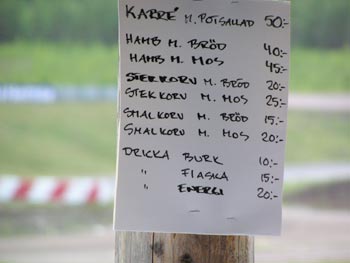 KARRÉ M. POTISALLAD 50:-
HAMB M. BRÖD 40:-
HAMB M. MOS 45:-
STEKKORV M. BRÖD 20:-
STEKKORV M. MOS 25:-
SMALKORV M. BRÖD 15:-
SMALKORV M. MOS 20:-
DRICKA BURK 10:-
" FLASKA 15:-
" ENERGI 20:-